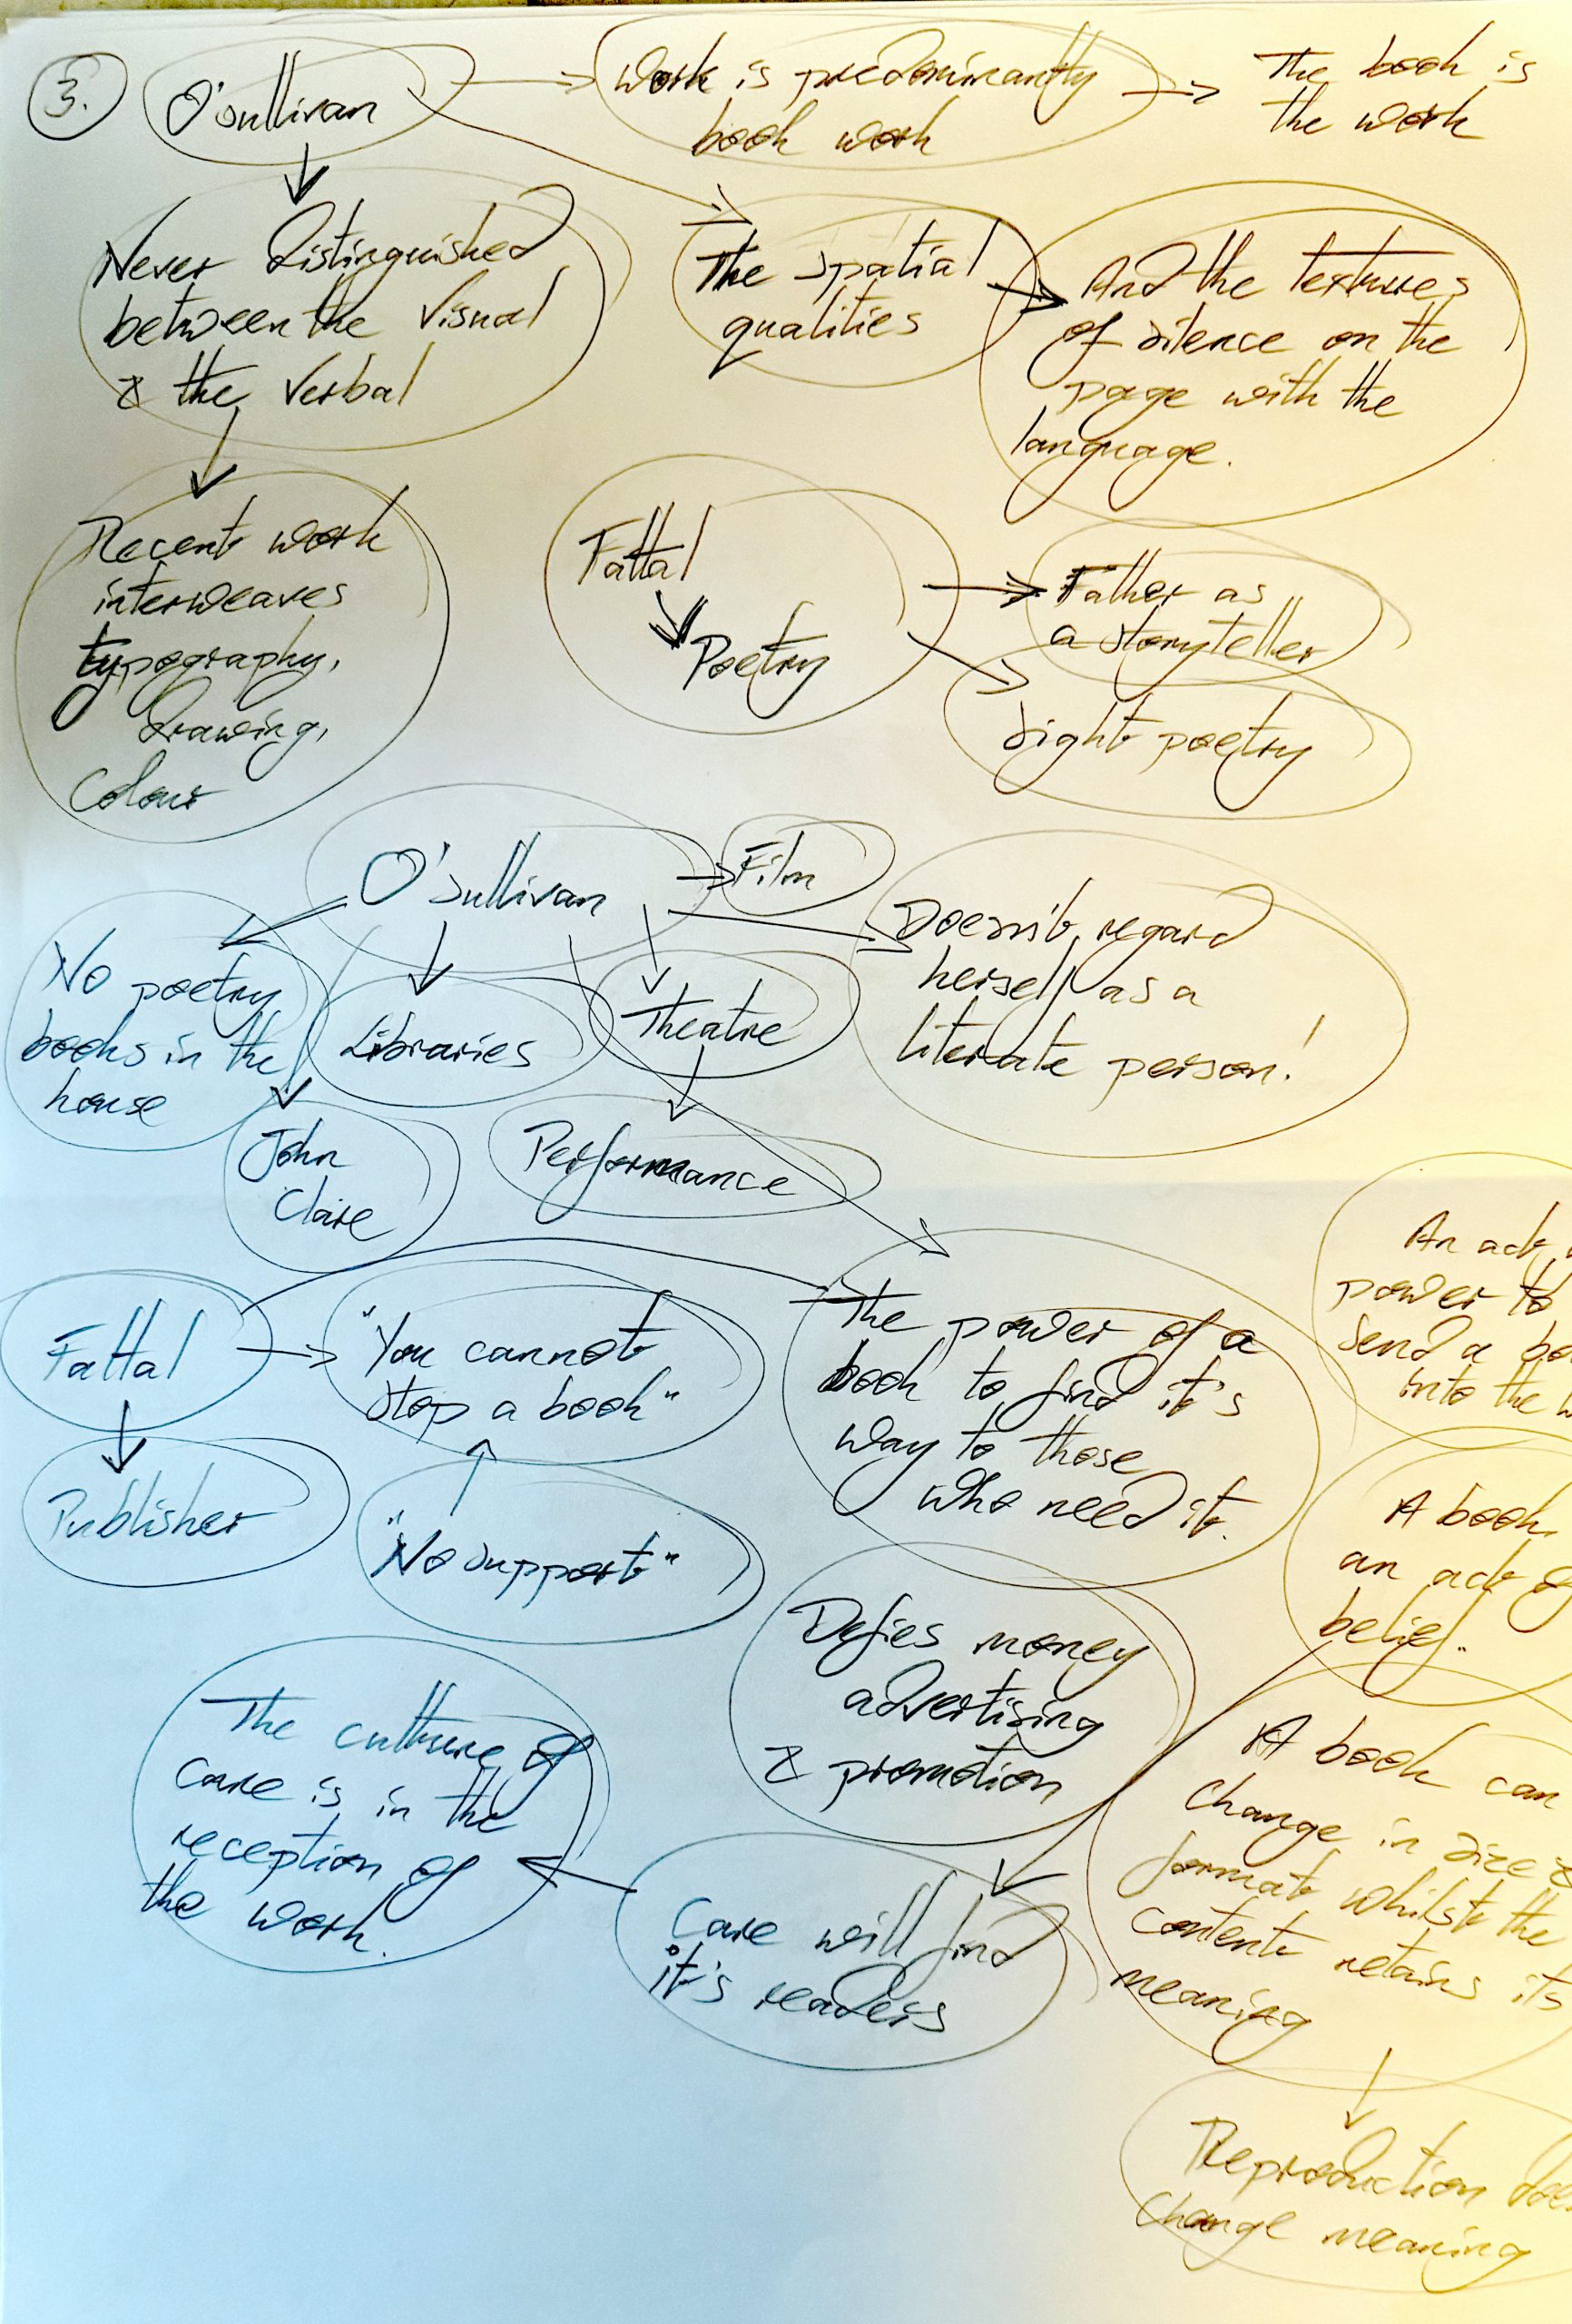 3.
O'Sullivan
Work is predominantly
book work
The book is
the work
Never distinguished
between the visual
& the verbal
The spatial
qualities
And the textures
of silence on the
page with the
language.
Recent work
interweaves
typography,
drawing,
Colour
Fattal
Poetry
Father as
a storyteller
Sight poetry
O'Sullivan
Film
Doesn't regard
herself as a
literate person!
No poetry
books in the
house
Libraries
Theatre
John
Clare
Performance
Fattal
"You cannot
stop a book"
The power of a
book to find it's
way to those
who need it.
An act
power to
send a
into the
Publisher
"No support"
A book
an act of
belief."
Defies money
advertising
& promotion
The culture of
care is in the
reception of
the work.
A book can
change in size &
format whilst the
content retains its
meaning
Care will find
it's readers
Reproduction
change meaning